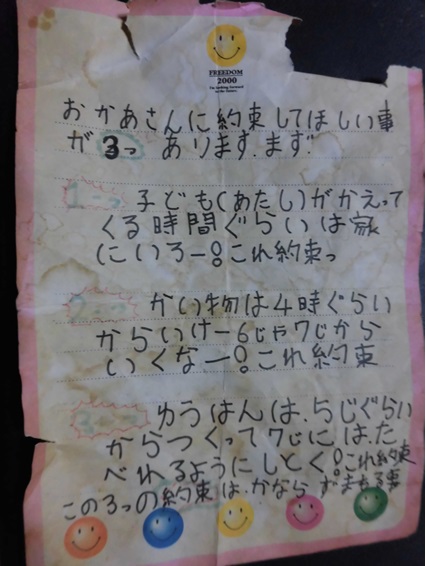 FREEDOM
2000
おかあさんに約束してほしい事
が3つ あります.まず!
1つ 子ども(あたし)がかえって
くる時間ぐらいは家
にいろー!これ約束っ
2つ かい物は4時ぐらい
からいけー6じゃ7じから
いくなー!これ約束
3つ ゆうはんは、5じぐらい
からつくって7じには、た
べれるようにしとく!これ約束
この3つの約束は、かならずまもる事